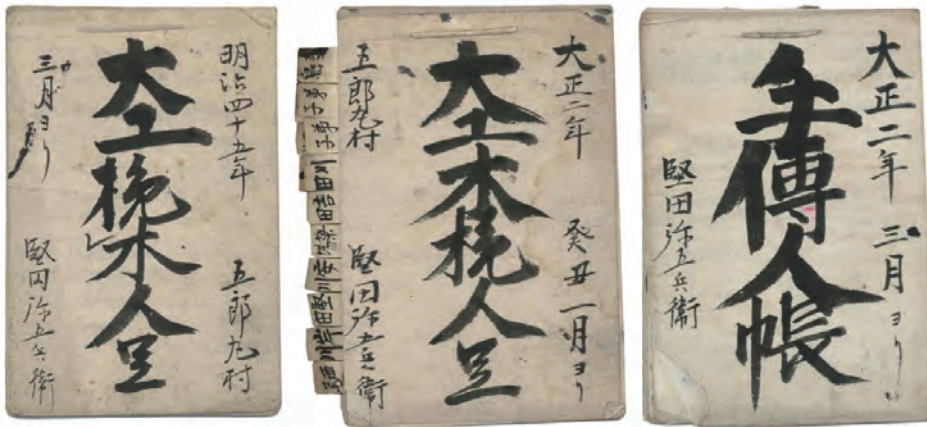 明治四十五年
五郎丸村
大工挽木人足
三月ヨリ
堅田弥五兵衛
大正二年
癸丑一月ヨリ
大工木挽人足
五郎丸村
堅田弥五兵衛
大正二年
三月ヨリ
手傳人帳
堅田弥五兵衛